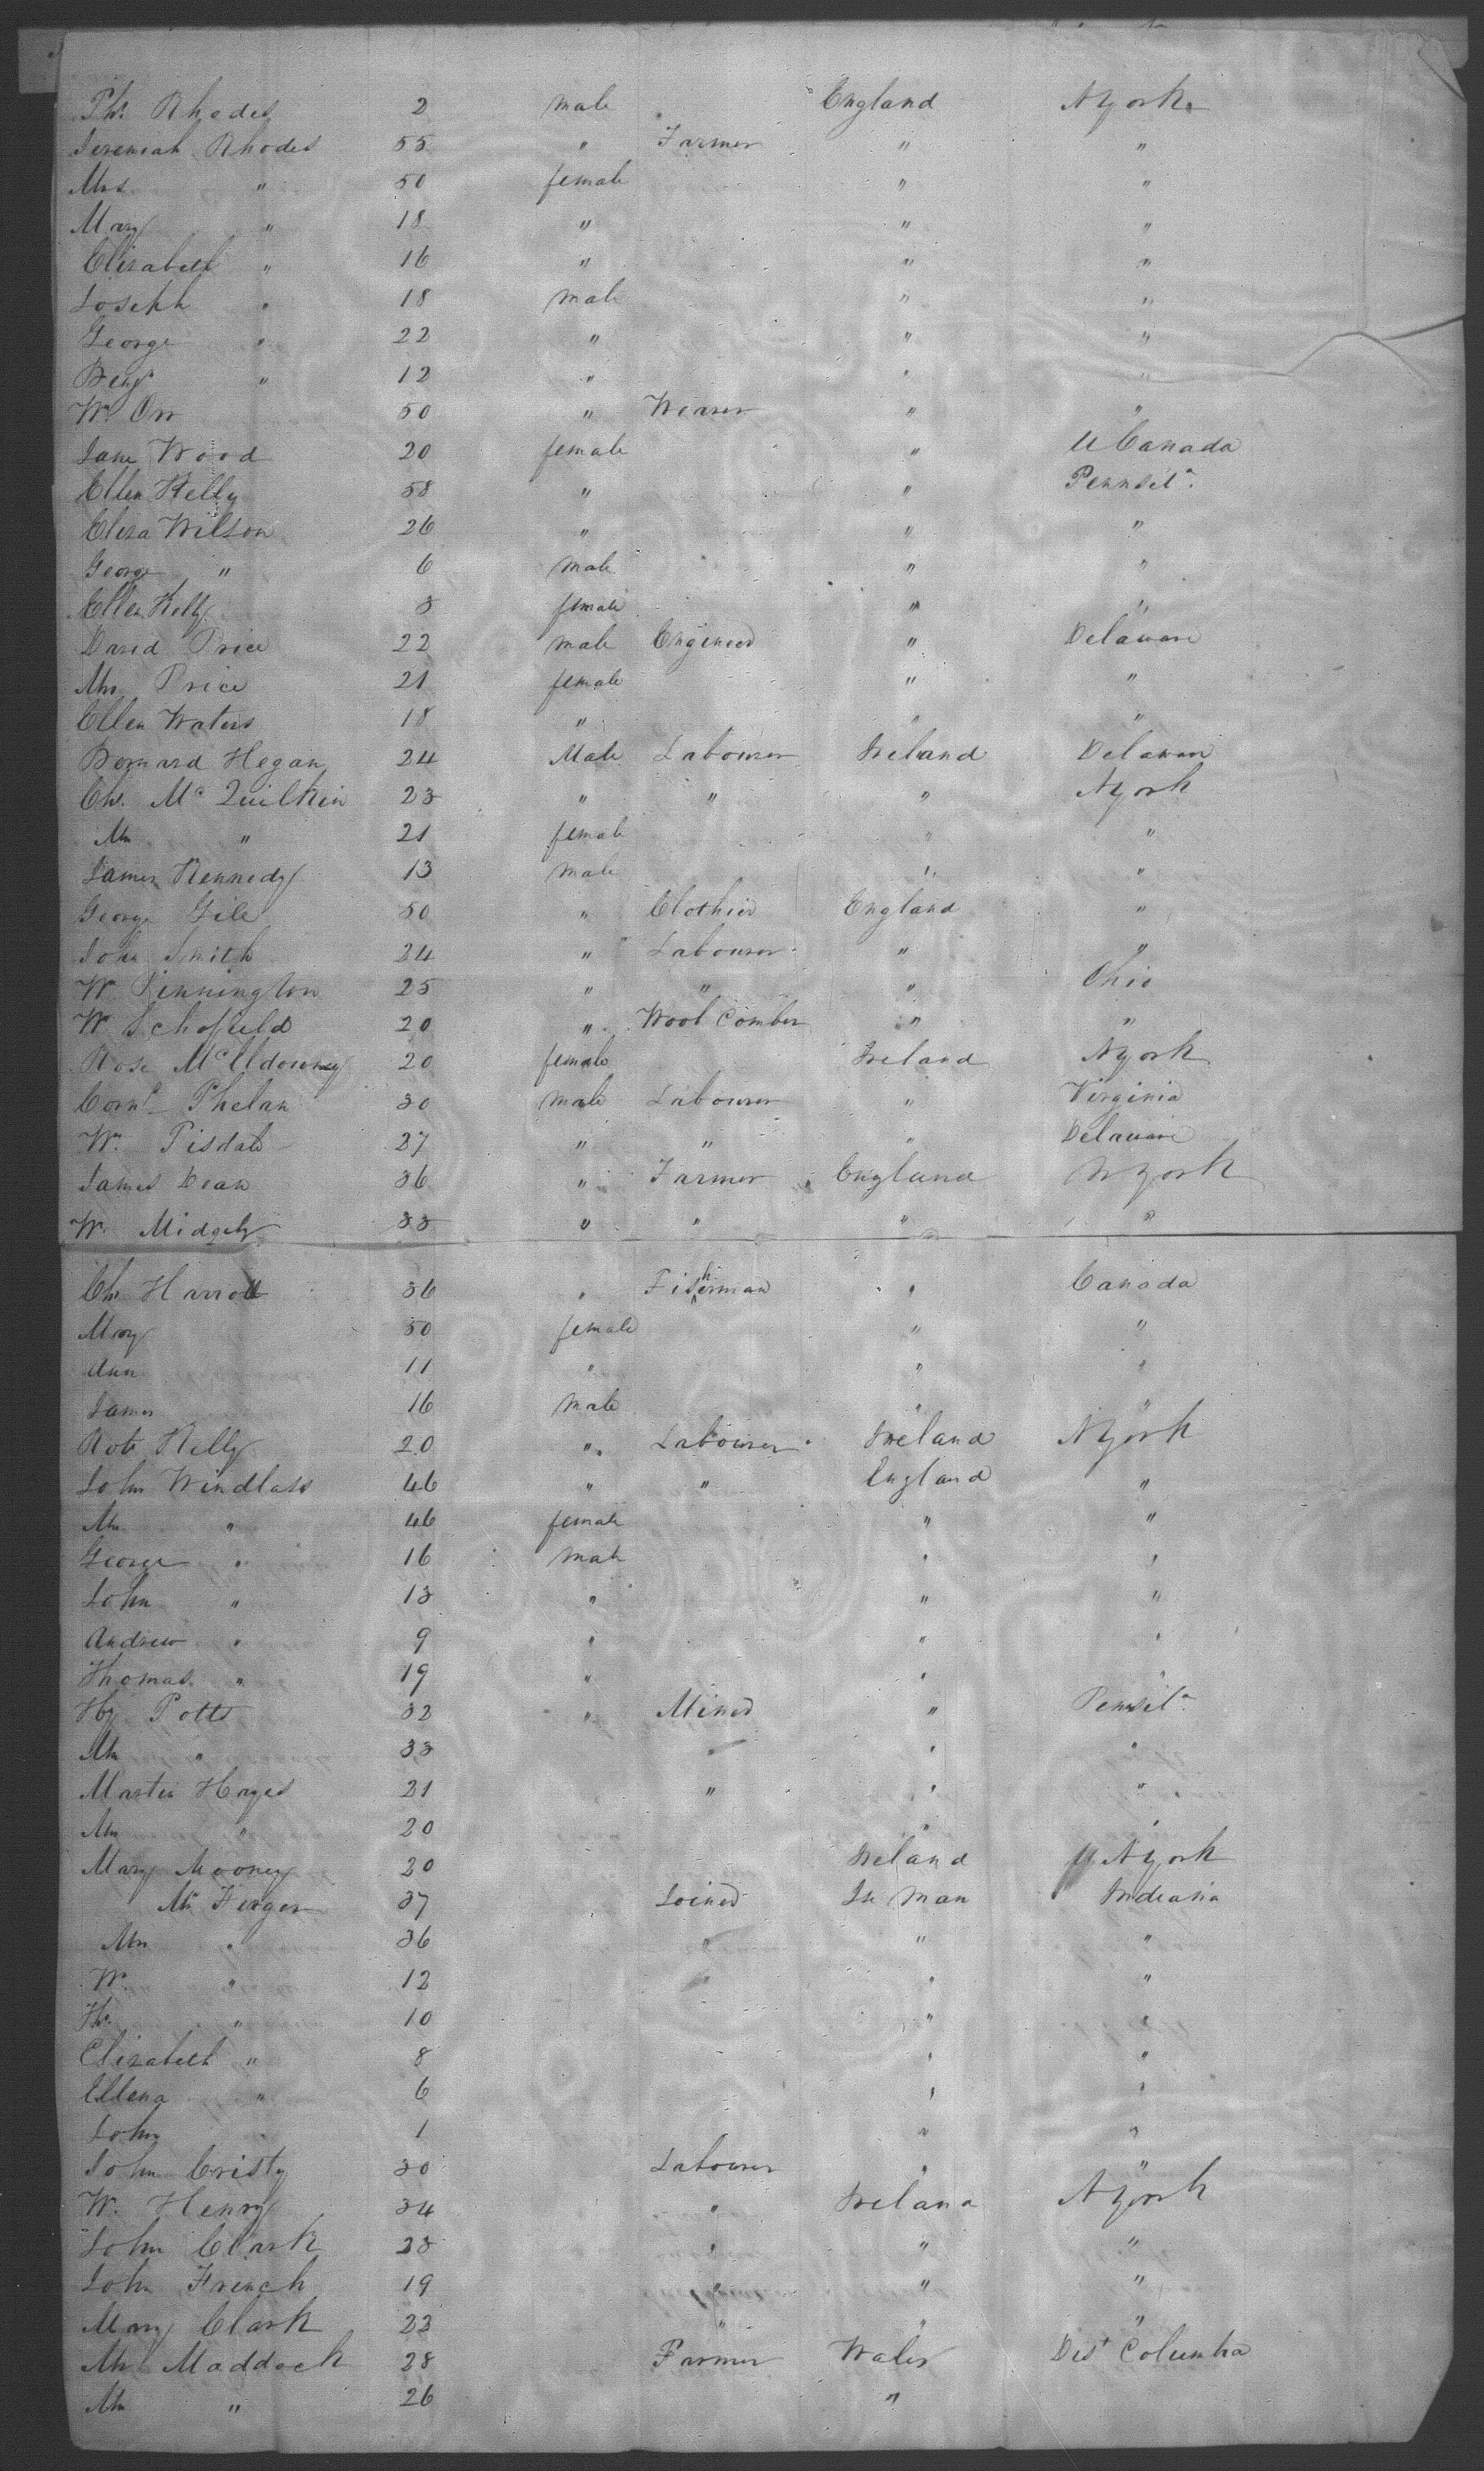 Ths. Rhodes 2 male England NYork
Jeremiah Rhodes 55 " Farmer " "
Mrs. " 50 female " "
Mary " 18 " " "
Elizabeth " 16 " " "
Joseph " 18 male " "
George " 22 " " "
Benjn " 12 " " "
Wm. Orr 50 " Weaver " "
Jane Wood 20 female " U Canada
Ellen Kelly 58 " " Pennsila.
Eliza Wilson 26 " " "
George " 6 male " "
Ellen Kelly 8 female " "
David Price 22 male Engineer " Delaware
Mrs Price 21 female " "
Ellen Waters 18 " " "
Bernard Hegan 24 Male Labourer Ireland Delaware
Chs. Mc Quilkin 23 " " " NYork
Mrs " 21 female " "
James Kennedy 13 male " "
George Gile 50 " Clothier England "
John Smith 24 " Labourer " "
W. Pennington 25 " " " Ohio
W Schofield 20 " Wool Comber " "
Rose McIldowney 20 female Ireland NYork
Cornl Phelan 30 male Labourer " Virginia
Wm. Tisdale 27 " " " Delaware
James Dean 36 " Farmer England NYork
W. Midgely 33 " " " "
Chs Harrott 36 " Fisherman " Canada
Mary 50 female " "
Ann 11 " " "
James 16 male " "
Robt Kelly 20 " Labourer Ireland NYork
John Windlass 46 " " England "
Mrs " 46 female " "
George " 16 male " "
John " 13 " " "
Andrew " 9 " " "
Thomas " 19 " " "
Hy Potts 32 " Miner " Pensila.
Mrs " 33 " " "
Martin Hayes 21 " " "
Mrs " 20 " "
Mary Mooney 20 Ireland NYork
Mr 37 Joiner Is Man Indiana
Mrs " 36 " " "
W. " 12 " " "
Ths. " 10 " "
Elizabeth " 8 " "
Ellena " 6 " "
John 1 " "
John Cristy 30 Labourer " "
W. Henry 34 " Ireland NYork
John Clark 28 " " "
John French 19 " " "
Mary Clark 22 " " "
Mr Maddock 28 Farmer Wales Dist Columbia
Mrs " 26 "